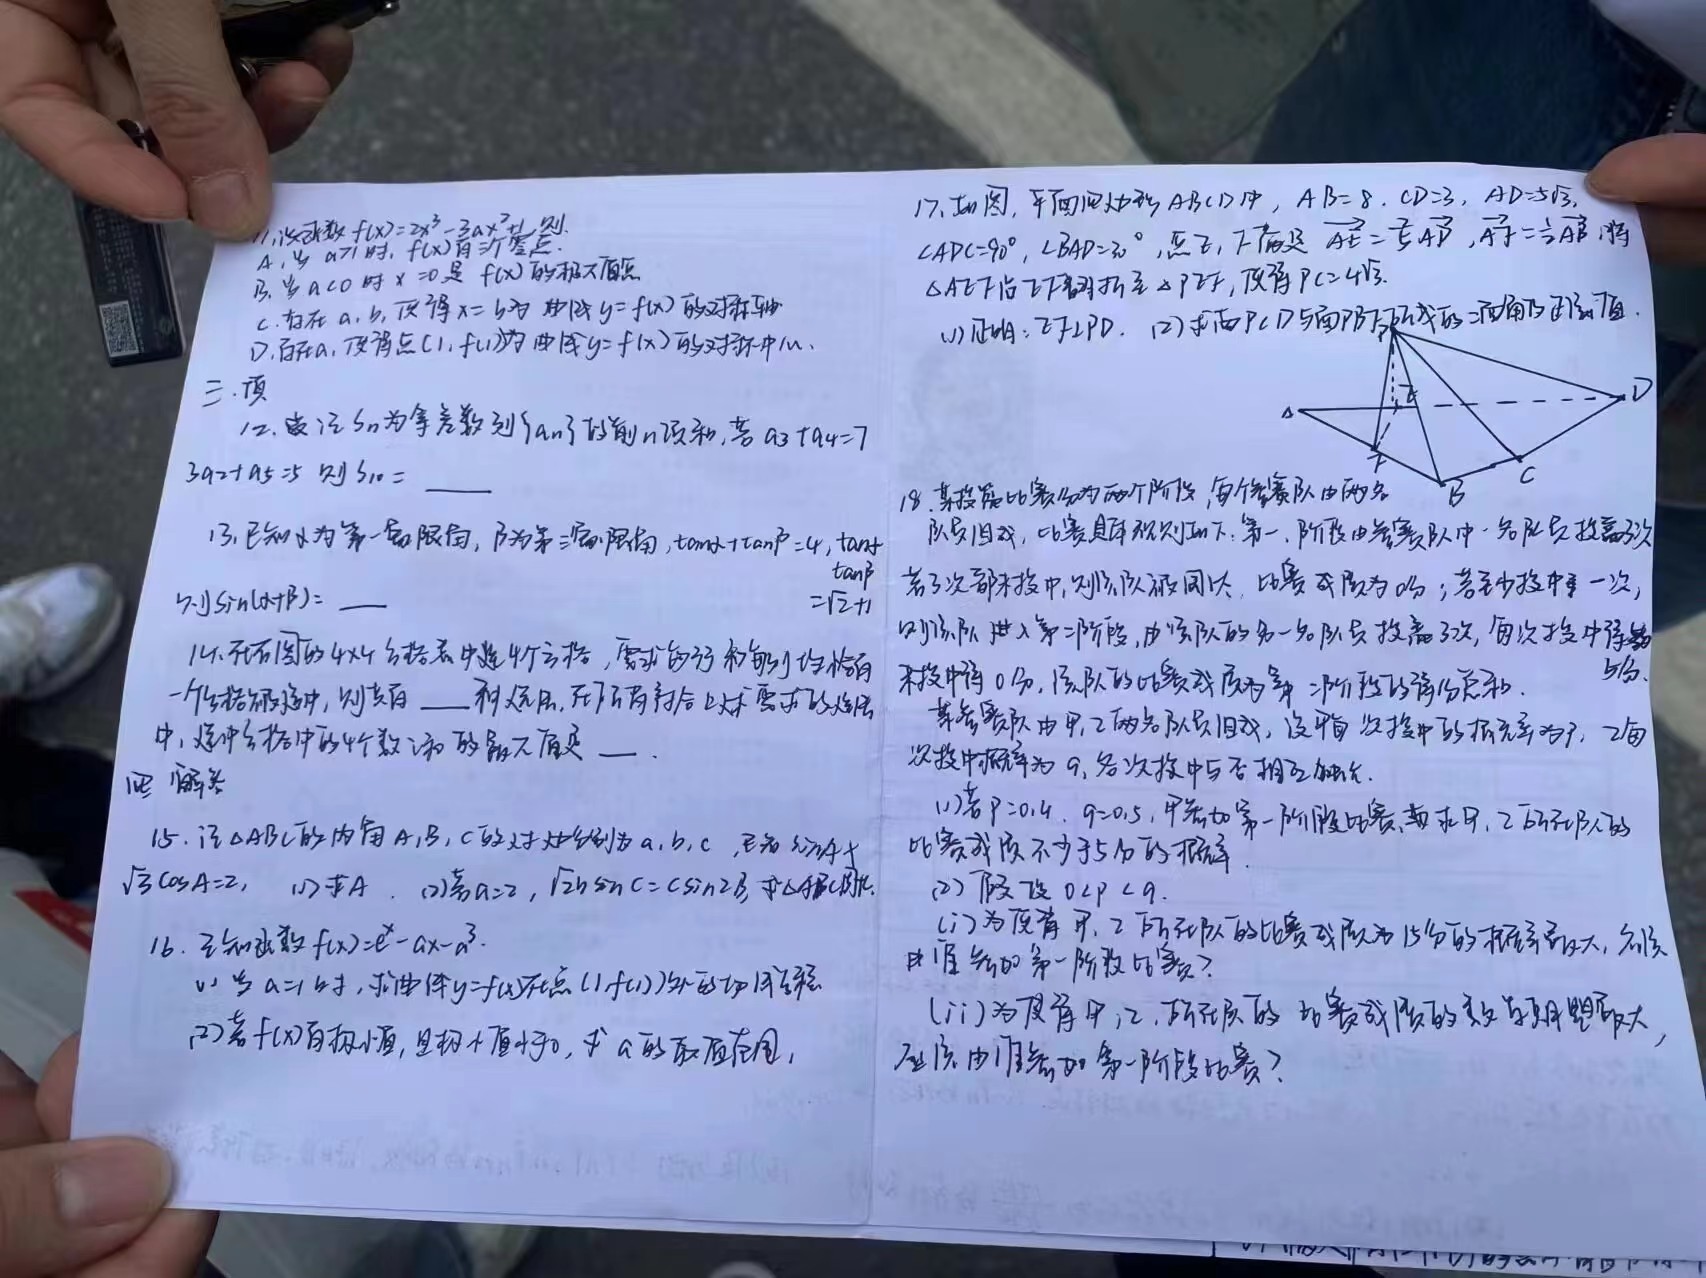 11.设函数f(x)=2x³-3ax²+1,则
A,当a>1时,f(x)有三个零点.
B,当a<0时x=0是f(x)的极大值点
C.存在a,b,使得x=b为曲线y=f(x)的对称轴
D.存在a,使得点(1,f(1))为曲线y=f(x)的对称中心.
三.填
12.记Sn为等差数列{an}的前n项和,若a3+a4=7
3a2+a5=5 则S10=
13.已知α为第一象限角,β为第三象限角,tanα+tanβ=4,tanα
tanβ
=√2+1
则sin(α+β)=
14.在右图的4×4方格表中选4个方格,要求每行和每列均恰有
一个方格被选中,则共有____种选法,在所有符合上述要求的选法
中,选中方格中的4个数之和的最大值是____.
四 解答
15.记△ABC的内角A,B,C的对边分别为a,b,c,已知sinA+
√3cosA=2, (1)求A. (2)若a=2,√2bsinC=csin2B,求△ABC周长.
16.已知函数f(x)=eˣ-ax-a³.
(1)当a=1时,求曲线y=f(x)在点(1,f(1))处的切线方程
(2)若f(x)有极小值,且极小值小于0,求a的取值范围,
17.如图,平面四边形ABCD中,AB=8.CD=3,AD=5√3,
∠ADC=90°,∠BAD=30°,点E,F满足AE=2/5AD,AF=1/2AB,将
△AEF沿EF翻折至△PEF,使得PC=4√3.
(1)证明:EF⊥PD. (2)求面PCD与面PBF所成的二面角的正弦值.
P
A
E
D
F
B
C
18.某投篮比赛分为两个阶段,每个参赛队由两名
队员组成,比赛具体规则如下:第一阶段由参赛队中一名队员投篮3次
若3次都未投中,则该队被淘汰,比赛成绩为0分;若至少投中一次,
则该队进入第二阶段,由该队的另一名队员投篮3次,每次投中得
5分.
未投中得0分,该队的比赛成绩为第二阶段的得分总和.
某参赛队由甲,乙两名队员组成,设甲每次投中的概率为P,乙每
次投中概率为q,各次投中与否相互独立.
(1)若P=0.4,q=0.5,甲参加第一阶段比赛,求甲,乙所在队的
比赛成绩不少于5分的概率.
(2)假设0<P<q.
(i)为使得甲,乙所在队的比赛成绩为15分的概率最大,应该
由谁参加第一阶段比赛?
(ii)为使得甲,乙,所在队的比赛成绩的数学期望最大,
应该由谁参加第一阶段比赛?